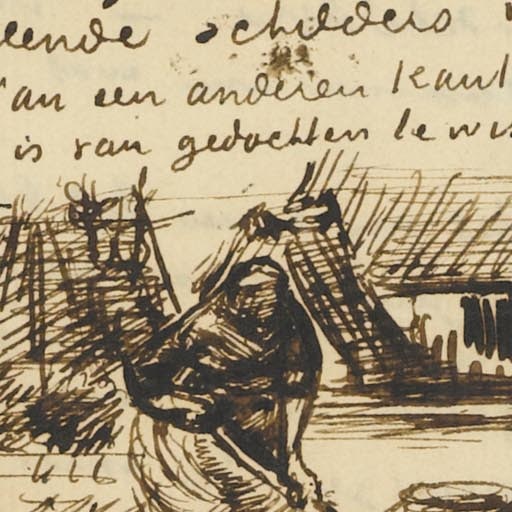 eende schilders
van een anderen kant
is van gedachten te wis